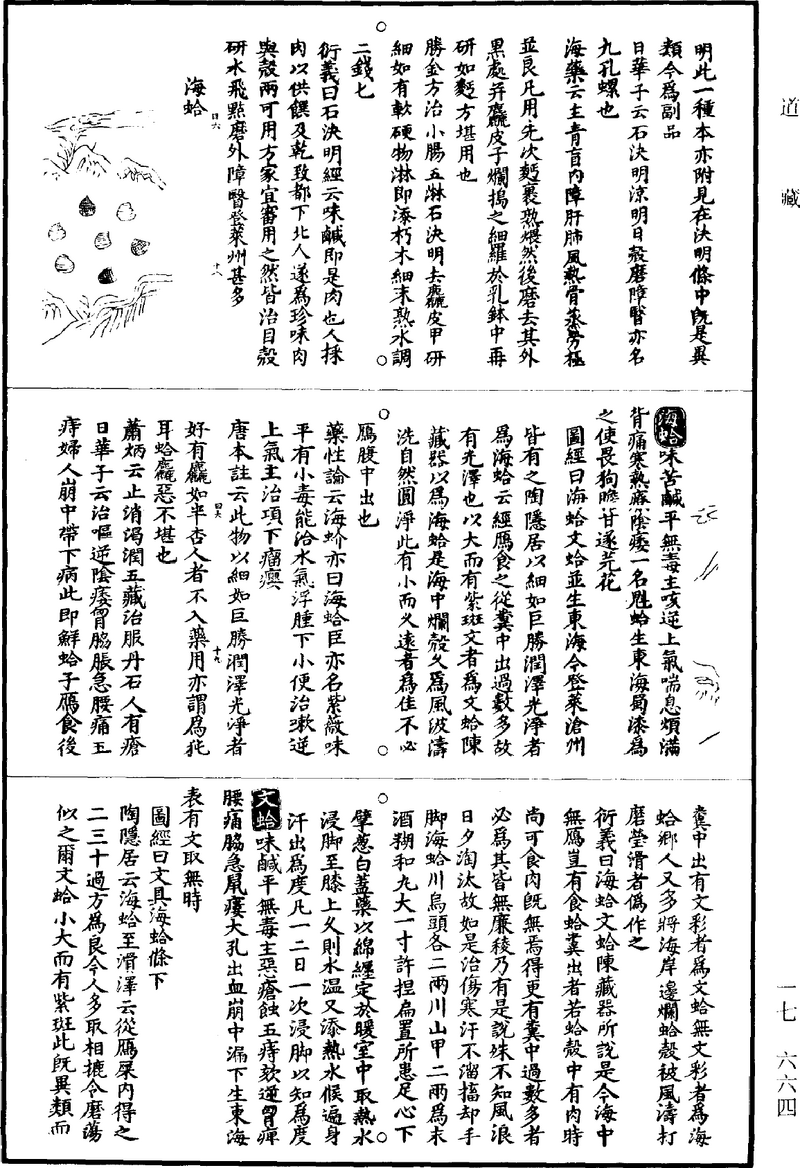 道藏
明此一種本亦附見在決明條中旣是異
類今爲副品
日華子云石決明涼明目殼磨障瞖亦名
九孔螺也
海藥云主青盲內障肝肺風熱骨蒸勞極
並良凡用先決麪裹熟煨然後磨去其外
黑處并麤皮子爛搗之細羅於乳鉢中再
研如麪方堪用也
勝金方治小腸五淋石決明去麤皮甲研
細如有軟硬物淋即添朽木細末熟水調
二錢匕
衍義曰石決明經云味鹹即是肉也人採
肉以供饌及乾致都下北人遂爲珍味肉
與殼兩可用方家宜審用之然皆治目殼
研水飛點磨外障瞖登萊州甚多
海蛤
海蛤味苦鹹平無毒主咳逆上氣喘息煩滿
胷痛寒熱療陰痿一名魁蛤生東海蜀漆爲
之使畏狗膽甘遂芫花
圖經曰海蛤文蛤並生東海今登萊滄州
皆有之陶隱居以細如巨勝潤澤光淨者
爲海蛤云經鴈食之從糞中出過數多故
有光澤也以大而有紫斑文者爲文蛤陳
藏器以爲海蛤是海中爛殼久爲風波濤
洗自然圓淨此有小而久遠者爲佳不必
鴈腹中出也
藥性論云海蚧亦曰海蛤臣亦名紫薇味
平有小毒能治水氣浮腫下小便治嗽逆
上氣主治項下瘤癭
唐本註云此物以細如巨勝潤澤光淨者
好有麤如半杏人者不入藥用亦謂爲㹠
耳蛤麤惡不堪也
蕭炳云止消渴潤五藏治服丹石人有瘡
日華子云治嘔逆陰痿胷脇脹急腰痛五
痔婦人崩中帶下病此即鮮蛤子鴈食後
糞中出有文彩者爲文蛤無文彩者爲海
蛤鄉人又多將海岸邊爛蛤殼被風濤打
磨瑩滑者僞作之
衍義曰海蛤文蛤陳藏器所說是今海中
無鴈豈有食蛤糞出者若蛤殼中有肉時
尚可食肉旣無焉得更有糞中過數多者
必爲其皆無廉稜乃有是說殊不知風浪
日夕淘汰故如是治傷寒汗不溜搐却手
脚海蛤川烏頭各二兩川山甲二兩爲末
酒糊和丸大一寸許捏扁置所患足心下
擘葱白蓋藥以綿纏定於暖室中取熱水
浸脚至膝上久則水温又添熱水候遍身
汗出爲度凡一二日一次浸脚以知爲度
文蛤味鹹平無毒主惡瘡蝕五痔欬逆胷痺
腰痛脇急鼠瘻大孔出血崩中漏下生東海
表有文取無時
圖經曰文具海蛤條下
陶隱居云海蛤至滑澤云從鴈屎內得之
二三十過方爲良今人多取相摝令磨蕩
似之爾文蛤小大而有紫斑此旣異類而
一七 六六四